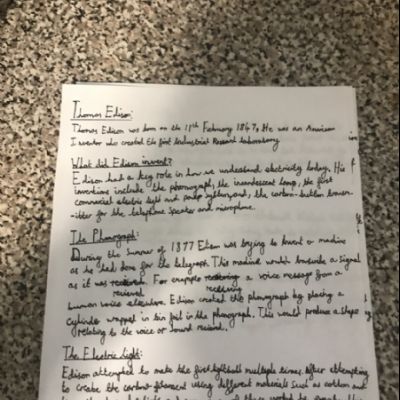 Thomas Edison:
Thomas Edison was born on the 11th February 1847. He was an American
Inventor who created the first Industrial Research Laboratory
What did Edison invent?
Edison had a key role in how we understand electricity today. His
inventions include the phonograph, the incandescent lamp, the first
commercial electric light and the carbon-button transm-
-itter for the telephone speaker and microphone.
The Phonograph:
During the Summer of 1877 Edison was trying to invent a machine
as he had done for the telegraph. This machine would transcribe a signal
as it was received. For example a voice message from a
recieved recieving
human voice elsewhere. Edison created the phonograph by placing a
cylinder wrapped in tin foil in the phonograph. This would produce a shape
relating to the voice or sound recieved.
The Electric Light:
Edison attempted to make the first lightbulb multiple times. After attempting
to create the carbon filament using different materials such as cotton and